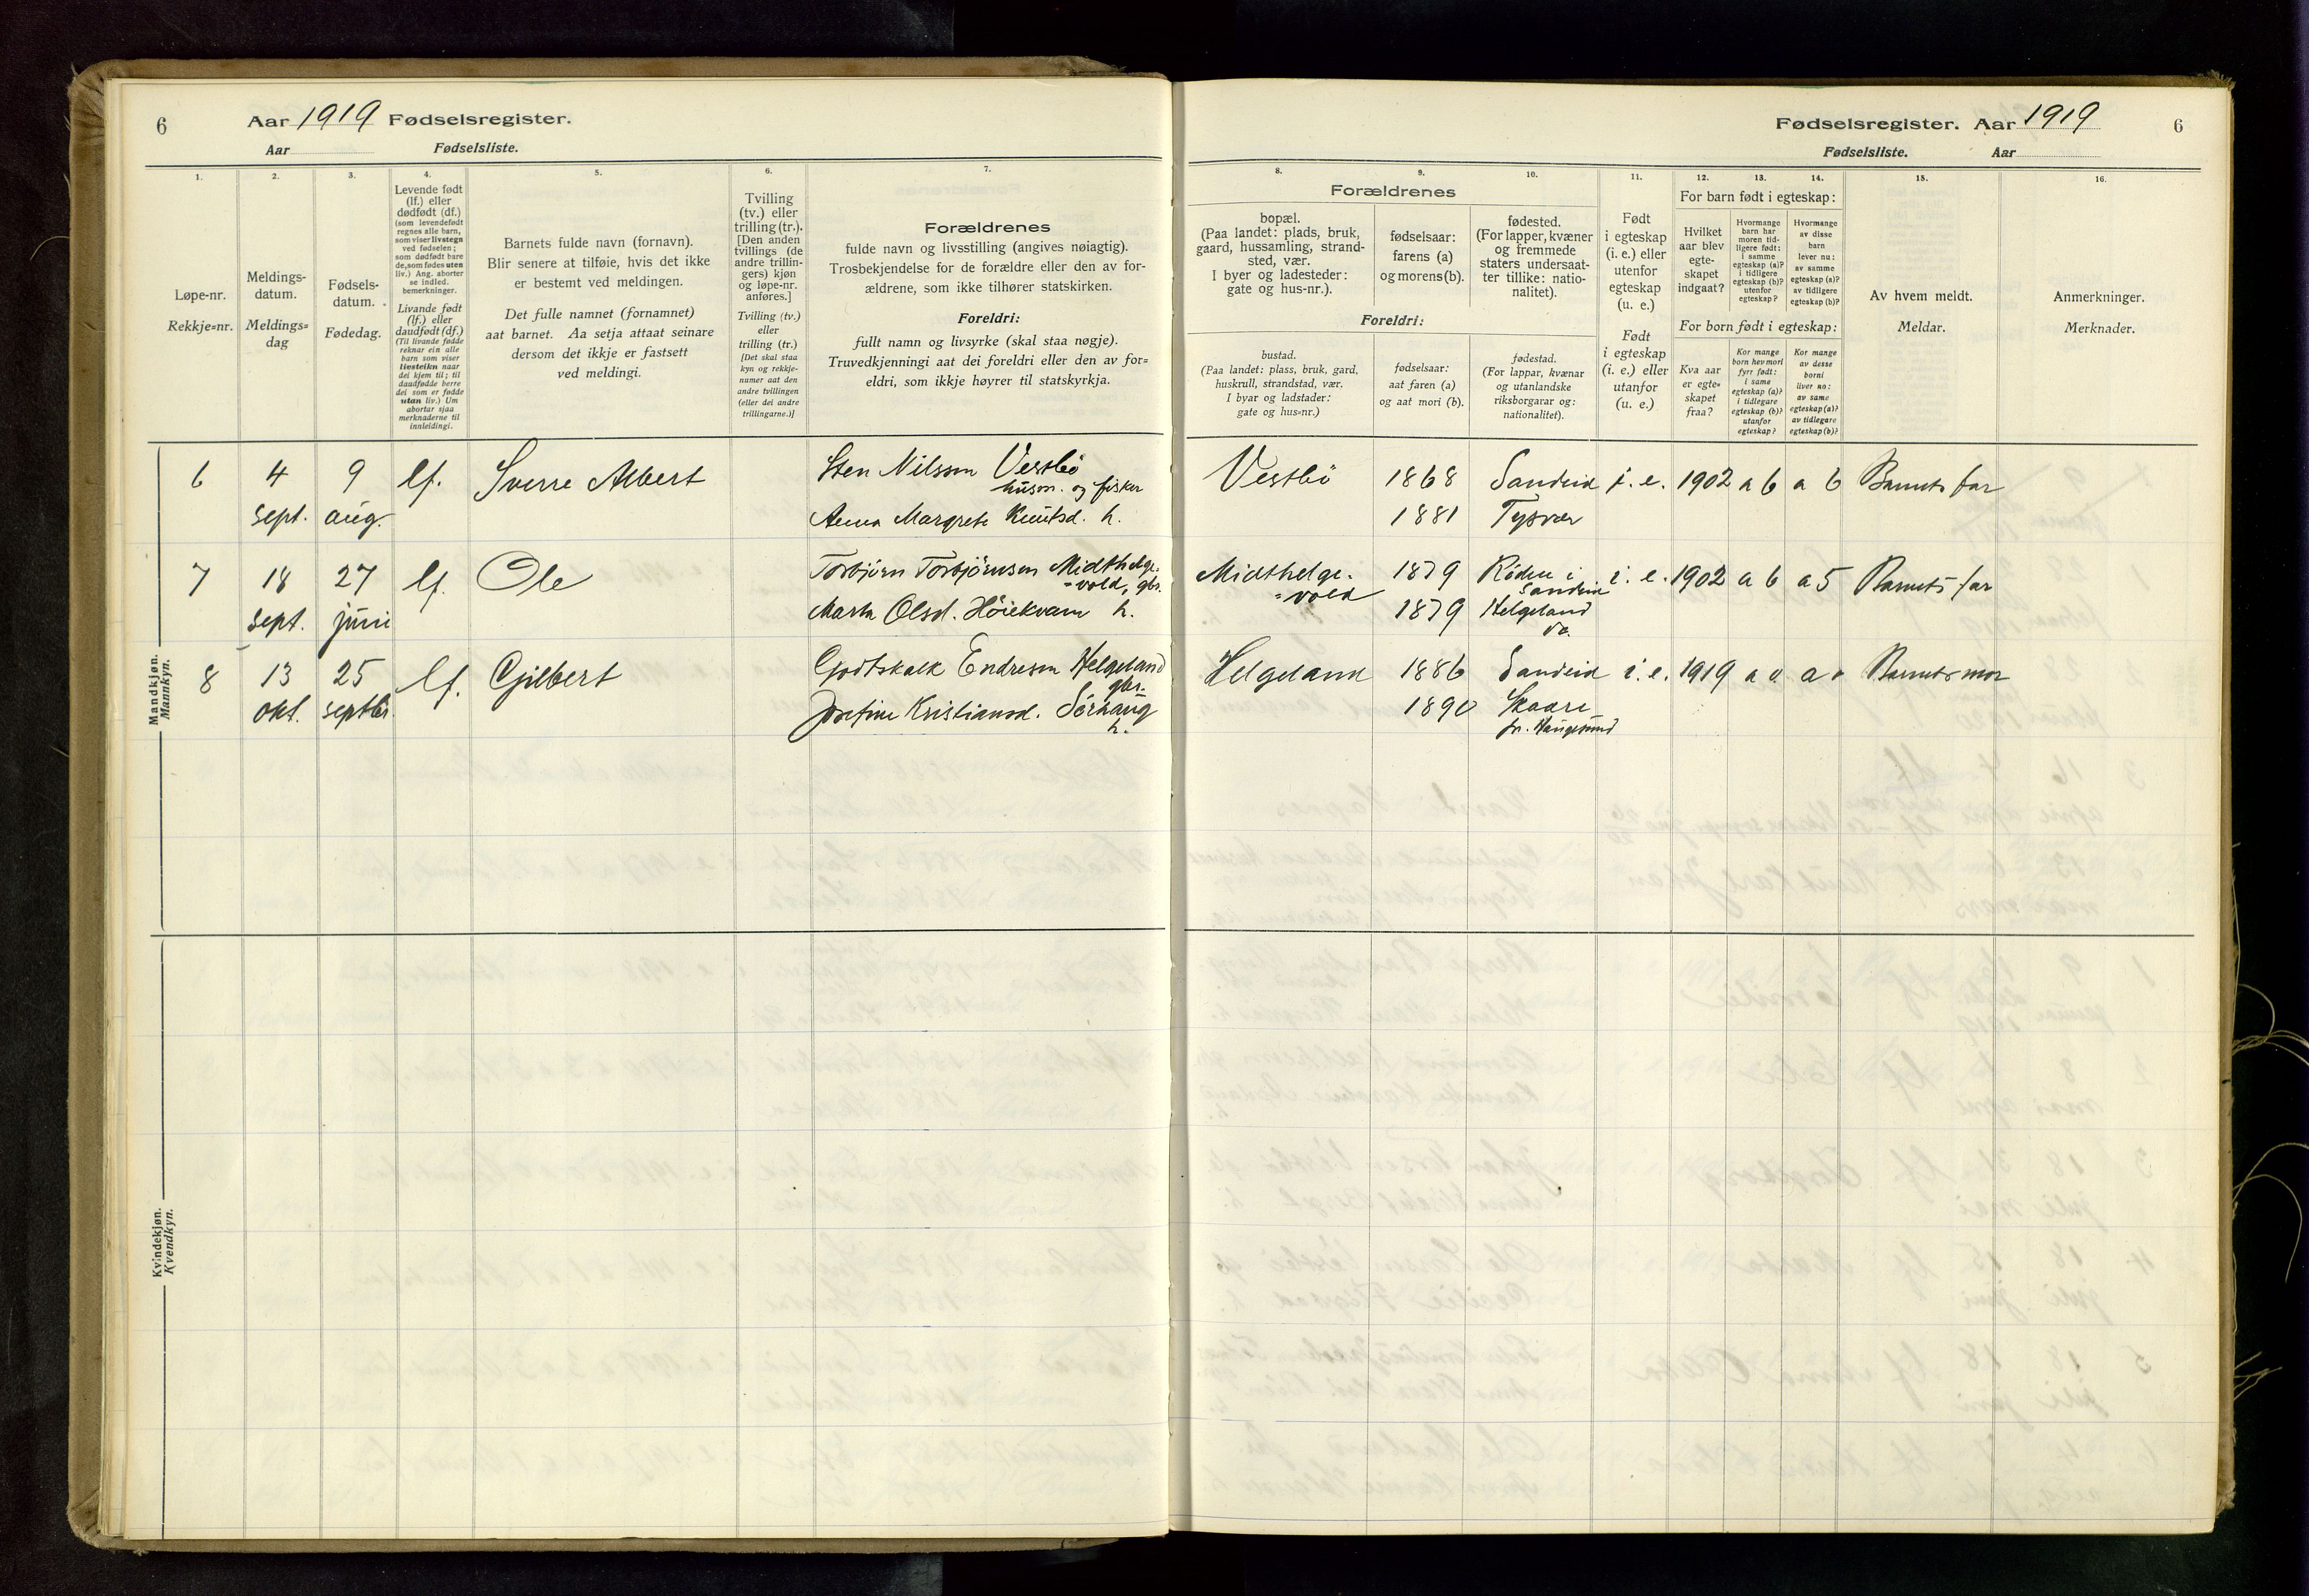 6
Aar 1919 Fødselsregister.
Aar Fødselsliste.
1.
2.
3.
4.
5.
6.
7.
Løpe-nr.
Rekkje=nr.
Meldings-
datum.
Meldings=
dag
Fødsels-
datum.
Fødedag.
Levende født
(lf.) eller
dødfødt (df.)
(som levendefødt
regnes alle barn,
som viser livstegn
ved fødselen;
som dødfødt bare
de, som fødes uten
liv.) Ang. aborter
se indled.
bemerkninger.
Livande født
(lf.) eller
daudfødt (df.)
(Til livande fødde
reknar ein alle
barn som viser
livsteikn naar
dei kjem til; til
daudfødde berre
dei som er fødde
utan liv.) Um
abortar sjaa
merknaderne til
innleidingi.
Barnets fulde navn (fornavn).
Blir senere at tilføie, hvis det ikke
er bestemt ved meldingen.
Det fulle namnet (fornamnet)
aat barnet. Aa setja attaat seinare
dersom det ikkje er fastsett
ved meldingi.
Tvilling
(tv.) eller
trilling (tr.).
[Den anden
tvillings (de
andre trillin-
gers) kjøn
og løpe-nr.
anføres.]
Tvilling (tv.)
eller
trilling (tr.)
[Det skal staa
kyn og rekkje-
numer aat den
andre tvillingen
(eller dei andre
trillingarne.)]
Forældrenes
fulde navn og livsstilling (angives nøiagtig).
Trosbekjendelse for de forældre eller den av for-
ældrene, som ikke tilhører statskirken.
Foreldri:
fullt namn og livsyrke (skal staa nøgje).
Truvedkjenningi aat dei foreldri eller den av for=
eldri, som ikkje høyrer til statskyrkja.
Mandkjøn.
Mannkyn.
6 4 9 lf. Sverre Albert Sten Nilssen Vestbö
husm. og fisker
sept. aug. Anna Margrete Knutsd. h.
7 18 27 lf. Ole Torbjörn Torbjörnsen Midthelge-
=vold, gbr.
sept. juni Marta Olsd. Höiekvam h.
8 13 25 lf. Gjilbert Gotskalk Endresen Helgeland
gbr.
okt. septbr. Josefine Kristiansd. Sörhaug
h.
Kvindekjøn.
Kvendkyn.
Fødselsregister. Aar 1919 6
Fødselsliste. Aar
8.
9.
10.
11.
12.
13.
14.
15.
16.
Forældrenes
bopæl.
(Paa landet: plads, bruk,
gaard, hussamling, strand-
sted, vær.
I byer og ladesteder:
gate og hus-nr.).
fødselsaar:
farens (a)
og morens (b).
fødested.
(For lapper, kvæner
og fremmede
staters undersaat-
ter tillike: natio-
nalitet).
Foreldri:
bustad.
(Paa landet: plass, bruk, gard,
huskrull, strandstad, vær.
I byar og ladstader:
gate og hus=nr.)
fødselsaar:
aat faren (a)
og aat mori (b).
fødestad.
(For lappar, kvænar
og utanlandske
riksborgarar og:
nationalitet).
Født
i egteskap
(i. e.) eller
utenfor
egteskap
(u. e.)
Født
i egteskap
(i. e.) eller
utanfor
(u. e.)
For barn født i egteskap:
Hvilket
aar blev
egte-
skapet
indgaat?
Hvormange
barn har
moren tid-
ligere født:
i samme
egteskap (a)?
i tidligere
egteskap (b)?
utenfor
egteskap?
Hvormange
av disse
barn
lever nu:
av samme
egteskap (a)?
av tidligere
egteskap (b)?
For born født i egteskap:
Kva aar
er egte=
skapet
fraa?
Kor mange
born hev mori
fyrr født:
i same
egteskap (a)?
i tidlegare
egteskap (b)?
utanfor
egteskap?
Kor mange
av desse
borni
liver no:
av same
egteskap (a)?
av tidlegare
egteskap (b)?
Av hvem meldt.
Meldar.
Anmerkninger.
Merknader.
Vestbö 1868 Sandeid i. e. 1902 a 6 a 6 Barnets far
1881 Tysvær
Midthelge- 1879 Röden i i. e. 1902 a 6 a 5 Barnets far
=vold Sandeid
1879 Helgeland
do.
Helgeland 1886 Sandeid i. e. 1919 a 0 a 0 Barnets mor
1890 Skaare
pr. Haugesund